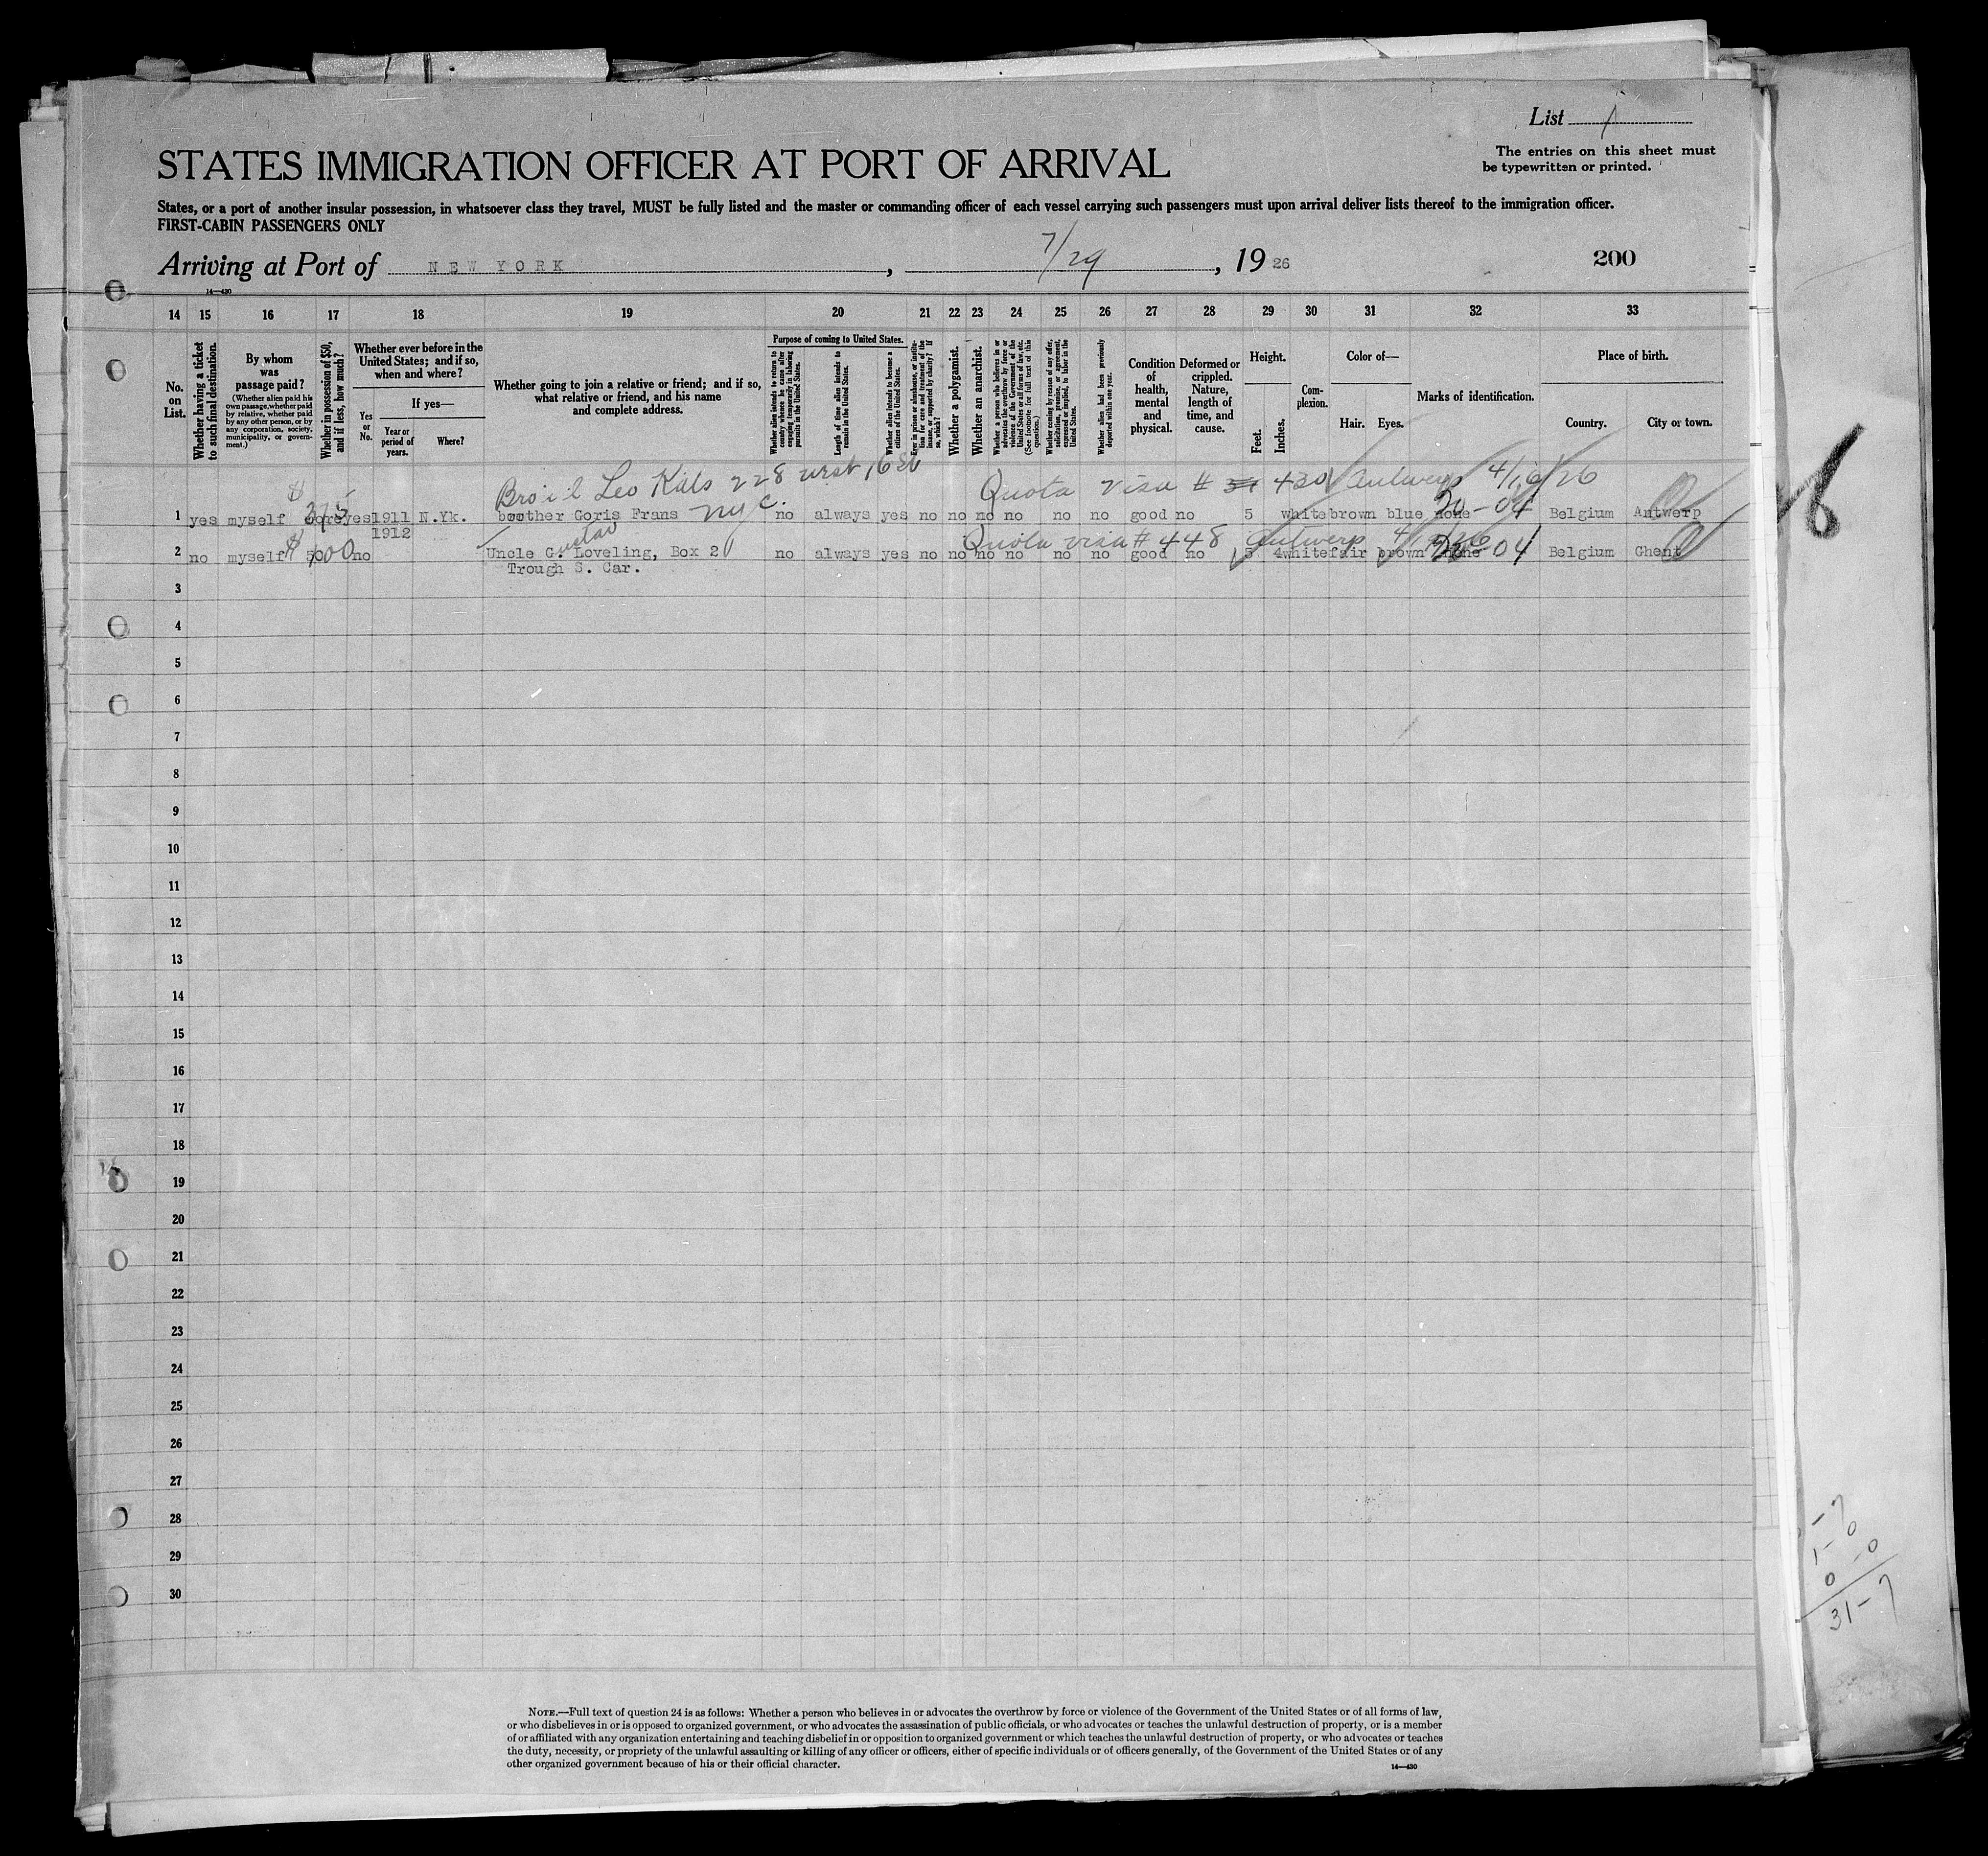 List 1
The entries on this sheet must
be typewritten or printed.
STATES IMMIGRATION OFFICER AT PORT OF ARRIVAL
States, or a port of another insular possession, in whatsoever class they travel, MUST be fully listed and the master or commanding officer of each vessel carrying such passengers must upon arrival deliver lists thereof to the immigration officer.
FIRST-CABIN PASSENGERS ONLY
Arriving at Port of NEW YORK, 7/29, 1926
200
14—430
14 15 16 17 18 19 20 21 22 23 24 25 26 27 28 29 30 31 32 33
No. on List.
Whether having a ticket to such final destination.
By whom was passage paid?
(Whether alien paid his own passage, whether paid by relative, whether paid by any other person, or by any corporation, society, municipality, or government.)
Whether in possession of $50, and if less, how much?
Whether ever before in the United States; and if so, when and where?
Yes or No.
If yes—
Year or period of years.
Where?
Whether going to join a relative or friend; and if so, what relative or friend, and his name and complete address.
Purpose of coming to United States.
Whether alien intends to return to country whence he came after engaging temporarily in laboring pursuits in the United States.
Length of time alien intends to remain in the United States.
Whether alien intends to become a citizen of the United States.
Ever in prison or almshouse, or institution for care and treatment of the insane, or supported by charity? If so, which?
Whether a polygamist.
Whether an anarchist.
Whether a person who believes in or advocates the overthrow by force or violence of the Government of the United States or all forms of law, etc. (See footnote for full text of this question.)
Whether coming by reason of any offer, solicitation, promise, or agreement, expressed or implied, to labor in the United States.
Whether alien had been previously deported within one year.
Condition of health, mental and physical.
Deformed or crippled. Nature, length of time, and cause.
Height.
Feet. Inches.
Complexion.
Color of—
Hair. Eyes.
Marks of identification.
Place of birth.
Country. City or town.
Leo Kuls 228 west 16 St Quota visa # 430 Antwerp 4/16/26
1 yes myself $ 375 yes 1911 N.Yk. brother Goris Frans NYC. no always yes no no no no no no good no 5 white brown blue none 20-04 Belgium Antwerp
1912 Quota visa # 448 Antwerp
2 no myself $ 500 no Uncle Gustav Loveling, Box 20 no always yes no no no no no no good no 5 4 white fair brown none 04 Belgium Ghent
Trough S. Car.
3
4
5
6
7
8
9
10
11
12
13
14
15
16
17
18
19
20
21
22
23
24
25
26
27
28
29
30
31-7
NOTE.—Full text of question 24 is as follows: Whether a person who believes in or advocates the overthrow by force or violence of the Government of the United States or of all forms of law,
or who disbelieves in or is opposed to organized government, or who advocates the assassination of public officials, or who advocates or teaches the unlawful destruction of property, or is a member
of or affiliated with any organization entertaining and teaching disbelief in or opposition to organized government or which teaches the unlawful destruction of property, or who advocates or teaches
the duty, necessity, or propriety of the unlawful assaulting or killing of any officer or officers, either of specific individuals or of officers generally, of the Government of the United States or of any
other organized government because of his or their official character.
14—430